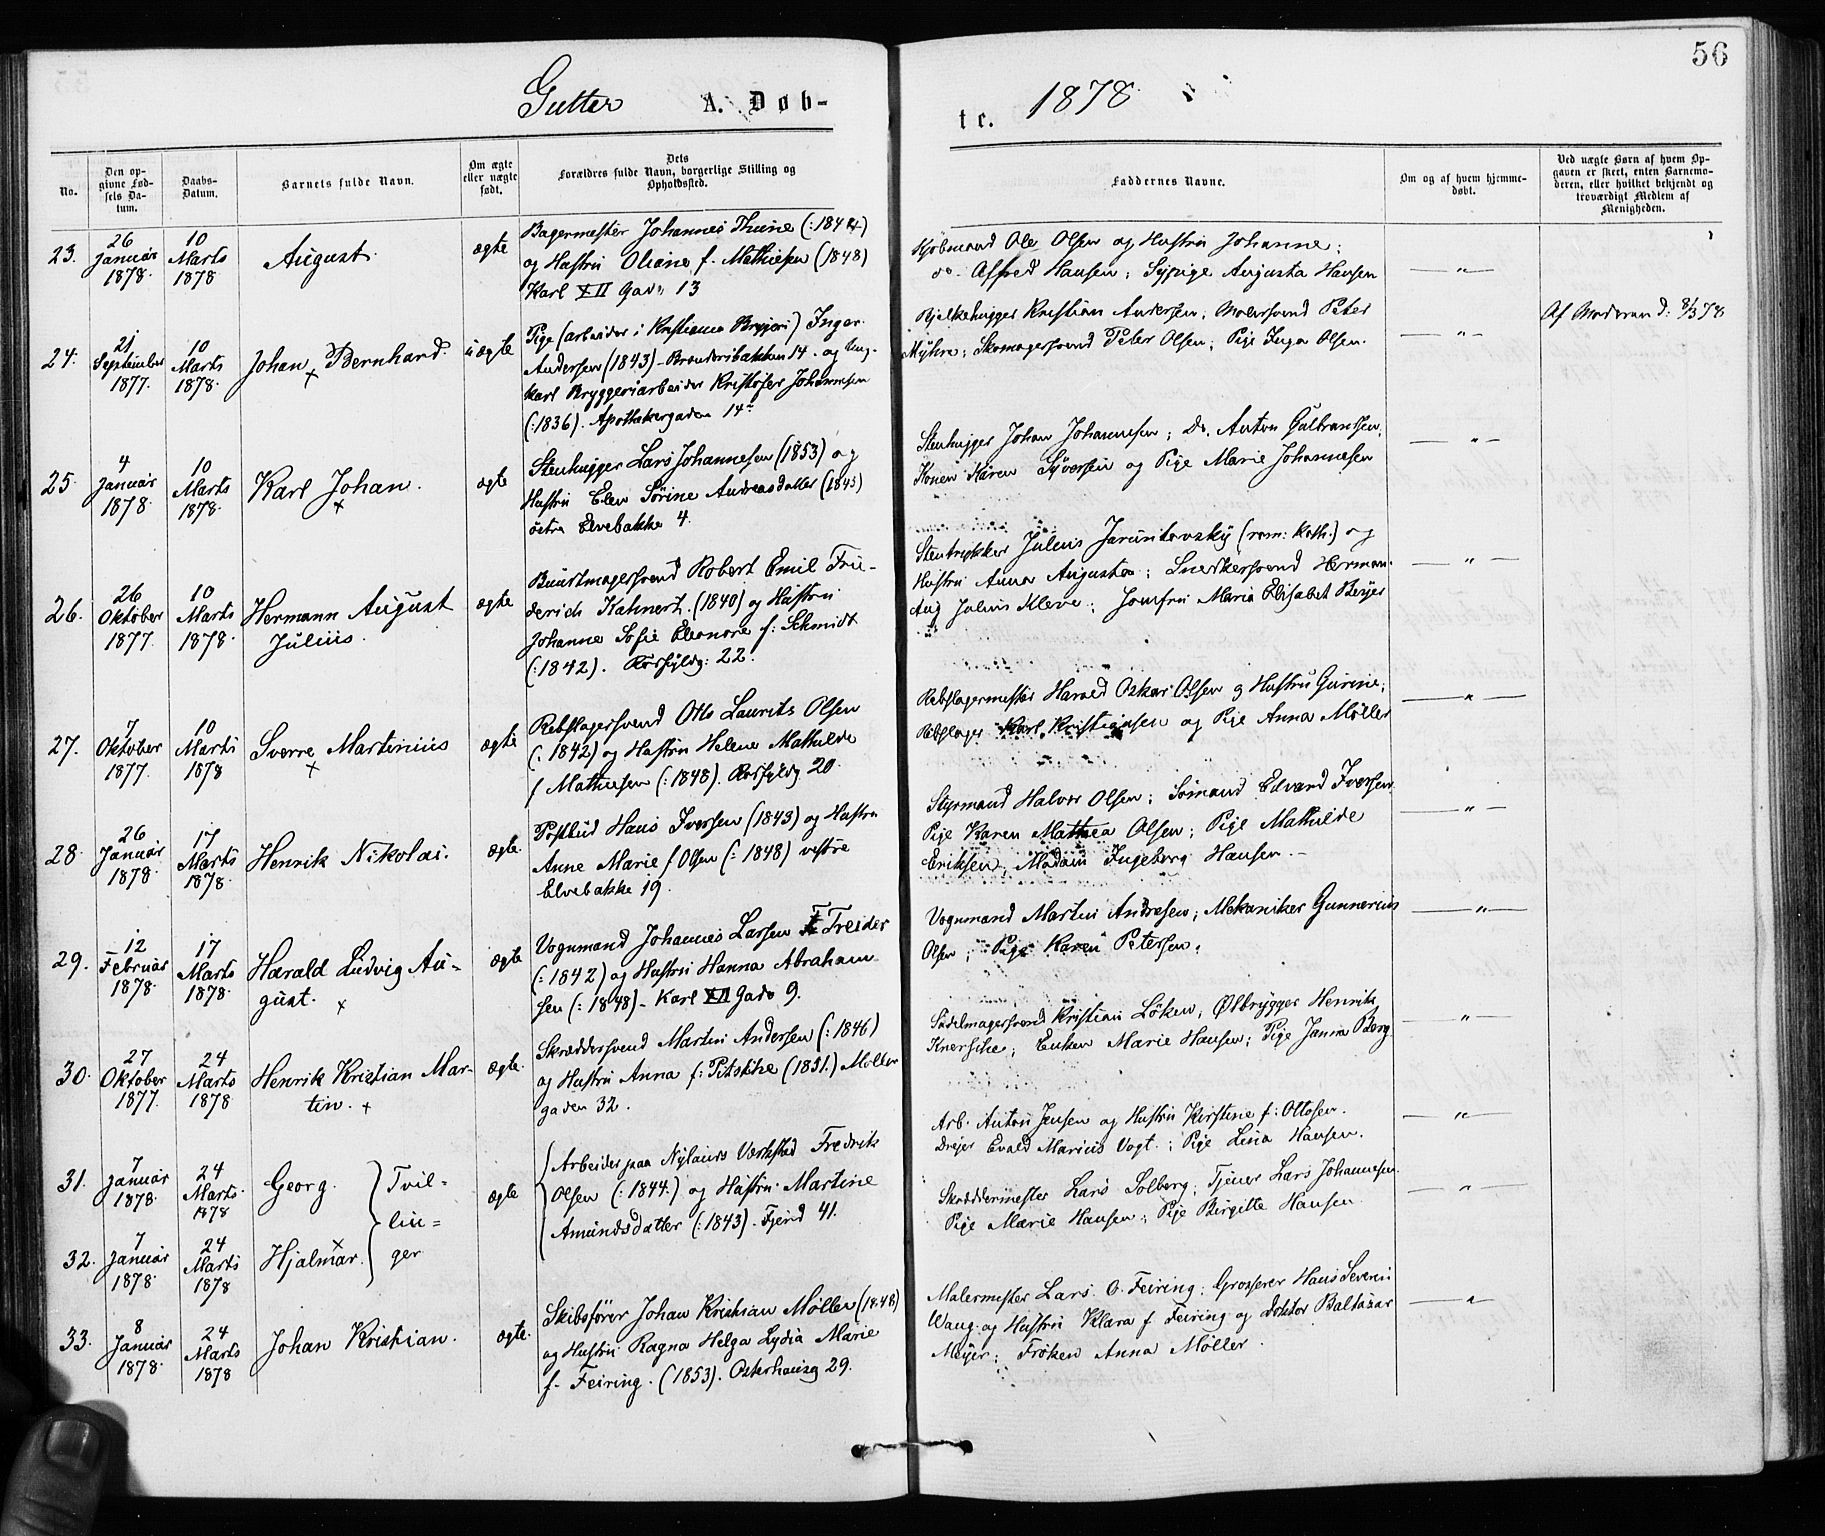 56
Gutter A. Døb-
te. 1878.
No.
Den op-
givne Fød-
sels Da-
tum.
Daabs-
Datum.
Barnets fulde Navn.
Om ægte
eller uægte
født.
Dets
Forældres fulde Navn, borgerlige Stilling og
Opholdssted.
Faddernes Navne.
Om og af hvem hjemme-
døbt.
Ved uægte Børn af hvem Op-
gaven er skeet, enten Barnemo-
deren, eller hvilket bekjendt og
troværdigt Medlem af
Menigheden.
23.
26
Januar
1878.
10
Marts
1878
August.
ægte
Bagermester Johannes Thune (:1844)
og Hustru Oliane f. Mathiesen (1848)
Karl XII Gade 13
Kjøbmand Ole Olsen og Hustru Johanne;
do. Alfred Hansen; Sypige Augusta Hansen
— " —
24.
21
September
1877.
10
Marts
1878.
Johan Bernhard.
uægte
Pige (arbeider i Kristiania Bryggeri) Inger
Andersen (1843) - Brænderibakken 14. og Ung-
karl Bryggeriarbeider Kristofer Johannesen
(:1836). Apothekergaden 14
Bjelkehugger Kristian Andersen; Malersvend Peter
Myhre; Skomagersvend Peter Olsen; Pige Inga Olsen.
— " —
Af Moderen d. 8/3 78
25.
4
Januar
1878.
10
Marts
1878.
Karl Johan.
ægte
Stenhugger Lars Johannesen (1853) og
Hustru Elen Sørine Andreasdatter (1845)
østre Elvebakke 4.
Stenhugger Johan Johannesen; Do. Anton Gulbransen;
Konen Karen Syversen og Pige Marie Johannesen
— " —
26.
26
Oktober
1877.
10
Marts
1878.
Hermann August
Julius.
ægte
Buntmagersvend Robert Emil Frie-
derich Kahnert. (1840) og Hustru
Johanne Sofie Eleonore f: Schmidt
(:1842). Torfyldg: 22.
Stentrykker Julius Jaruntovsky (rom: kath.) og
Hustru Anna Augusta; Snedkersvend Herman
Aug Julius Kleve; Jomfru Maria Elisabet Beyer
— " —
27.
7
Oktober
1877.
10
Marts
1878
Sverre Martinius
ægte
Rebslagersvend Otto Laurits Olsen
(:1842) og Hustru Helene Mathilde
f Mathiesen (:1848). Torfyldg 20.
Rebslagermester Harald Oskar Olsen og Hustru Gurine;
Rebslager Karl Kristiansen og Pige Anna Møller
— " —
28.
26
Januar
1878.
17
Marts
1878.
Henrik Nikolai.
ægte.
Postbud Hans Iversen (1843) og Hustru
Anne Marie f Olsen (:1848) vestre
Elvebakke 19.
Styrmand Halvor Olsen; Sømand Edvard Iversen
Pige Karen Mathea Olsen; Pige Mathilde
Eriksen, Madam Ingeborg Hansen.
— " —
29.
12
Februar
1878.
17
Marts
1878.
Harald Ludvig Au-
gust.
ægte
Vognmand Johannes Larsen Freider
(:1842) og Hustru Hanna Abraham-
sen (:1848) - Karl XII Gade 9.
Vognmand Martin Andresen; Mekaniker Gunnerius
Olsen; Pige Karen Petersen.
— " —
30.
27
Oktober
1877.
24
Marts
1878
Henrik Kristian Mar-
tin.
ægte.
Skræddersvend Martin Andersen (:1846)
og Hustru Anna f: Pitschke (1851.) Møller
gaden 32.
Sadelmagersvend Kristian Löken; Ølbrygger Henrik
Knerschke; Enken Marie Hansen; Pige Janna Berg
— " —
31.
7
Januar
1878.
24
Marts.
1878
Georg.
Tvil-
lin-
ger
ægte
Arbeider paa Nylands Værksted Fredrik
Olsen (:1844.) og Hustru Martine
Amundsdatter (:1843). Fjerd 41.
Arb. Anton Jensen og Hustru Kirstine f: Ottosen.
Dreier Evald Marius Vogt.; Pige Lina Hansen.
— " —
32.
7
Januar
1878.
24
Marts
1878
Hjalmar.
Skræddermester Lars Solberg; Tjener Lars Johannesen.
Pige Marie Hansen; Pige Birgitte Hansen
— " —
33.
8
Januar
1878.
24
Marts
1878
Johan Kristian.
ægte.
Skibsfører Johan Kristian Møller (1848)
og Hustru Ragna Helga Lydia Marie
f. Feiring. (1853). Osterhausg 29.
Malermester Lars O. Feiring; Grosserer Hans Severin
Waug. og Hustru Klara f Feiring og Doktor Baltazar
Meyer; Frøken Anna Møller.
— " —